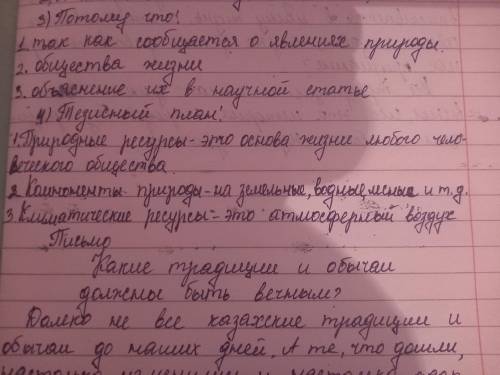 3) Потому что!
1. так как сообщается о явлениях природы.
2. общества жизни
3. объяснение их в научной статье
4) Тезисный план!
1. Природные ресурсы - это основа жизни любого чело-
веческого общества.
2. Компоненты природы - на земельные, водные, лесные и т.д.
3. Климатические ресурсы - это атмосферный воздух
Письмо
Какие традиции и обычаи
должны быть вечным?
Далеко не все казахские традиции и
обычаи до наших дней. А те, что дошли,